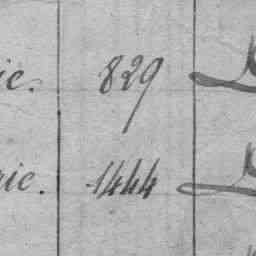 ic. 829
ric. 1444